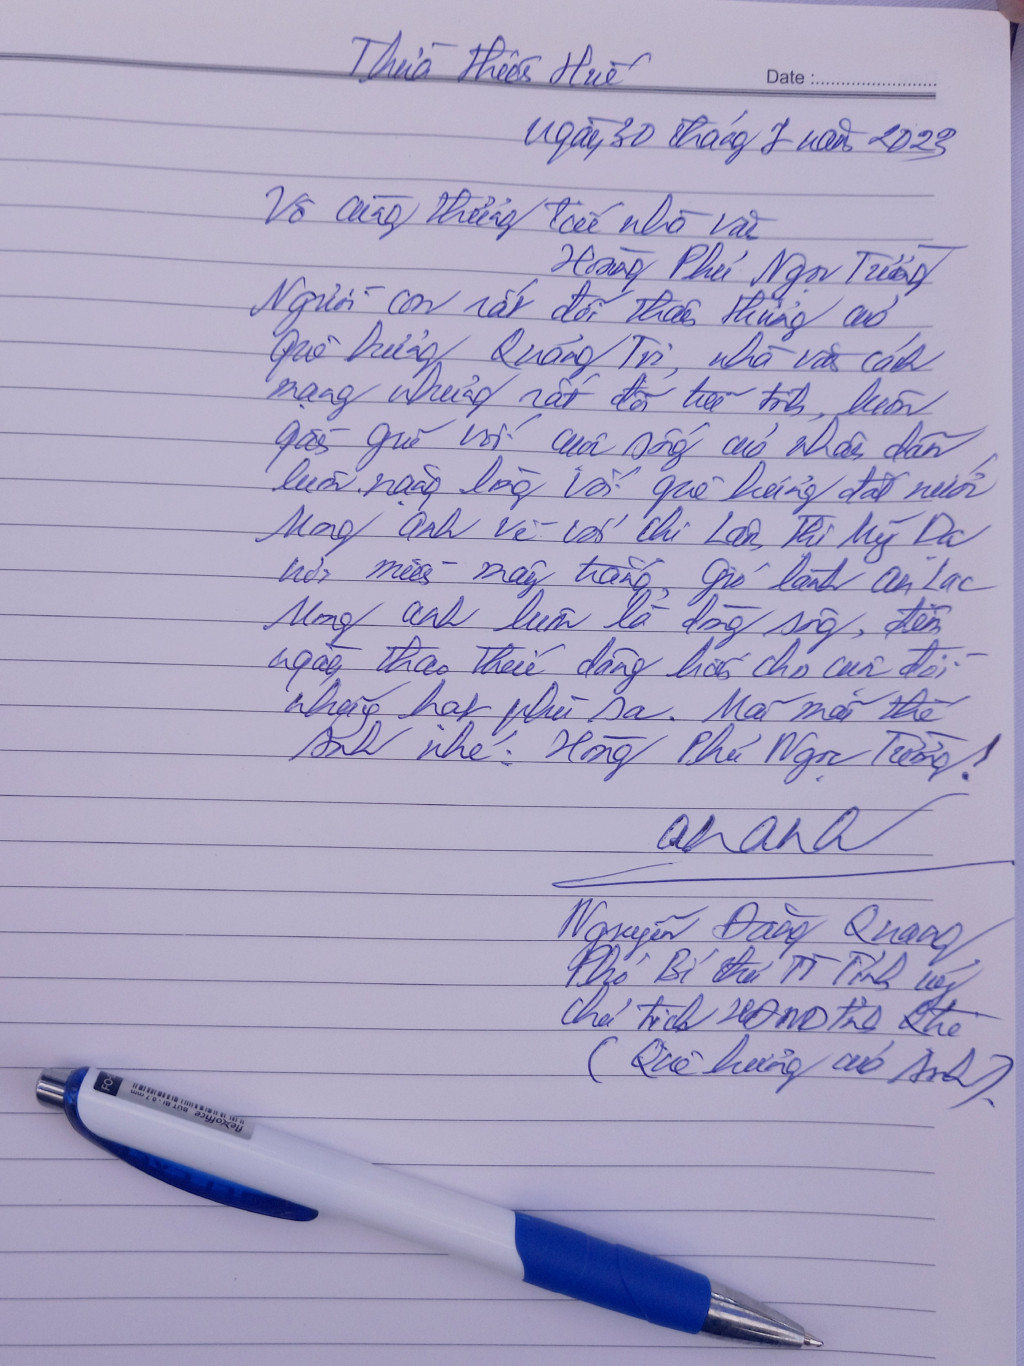 Thừa Thiên Huế
Date :
ngày 30 tháng 7 năm 2023
Vô cùng thương tiếc nhà văn
Hoàng Phủ Ngọc Tường
Người con rất đỗi thân thương của
quê hương Quảng Trị, nhà văn cách
mạng nhưng rất đỗi trữ tình, luôn
gần gũi với cuộc sống của nhân dân,
luôn nặng lòng với quê hương đất nước
Mong anh về với chị Lâm Thị Mỹ Dạ
nơi miền mây trắng, gió lành an lạc
Mong anh luôn là dòng sông, đêm
ngày thao thức dâng hiến cho cuộc đời
những hạt phù sa. Mãi mãi thế
Anh nhé: Hoàng Phủ Ngọc Tường!
Nguyễn Đăng Quang
Phó Bí thư TT Tỉnh ủy
Chủ tịch HĐND tỉnh QTrị
(Quê hương của Anh).
flexoffice